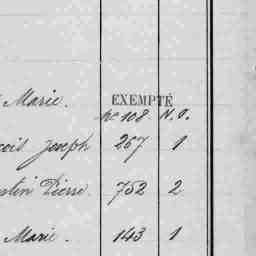 Marie. EXEMPTÉ
Nº 108. N. O.
Joseph 267 1
Pierre. 752 2
Marie. 143 1